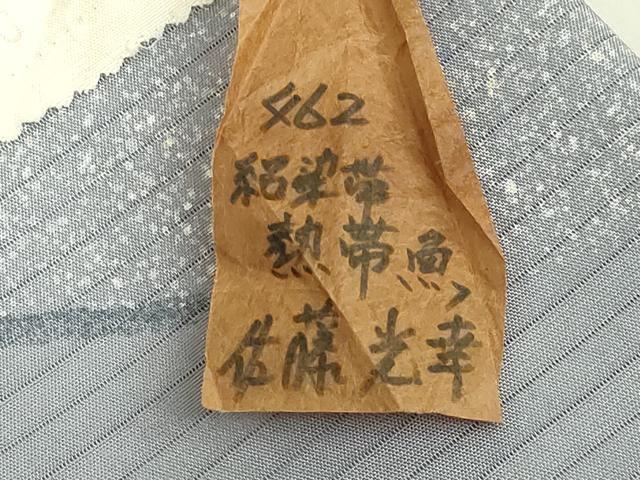 462
絽染帯
熱帯魚、
佐藤光幸